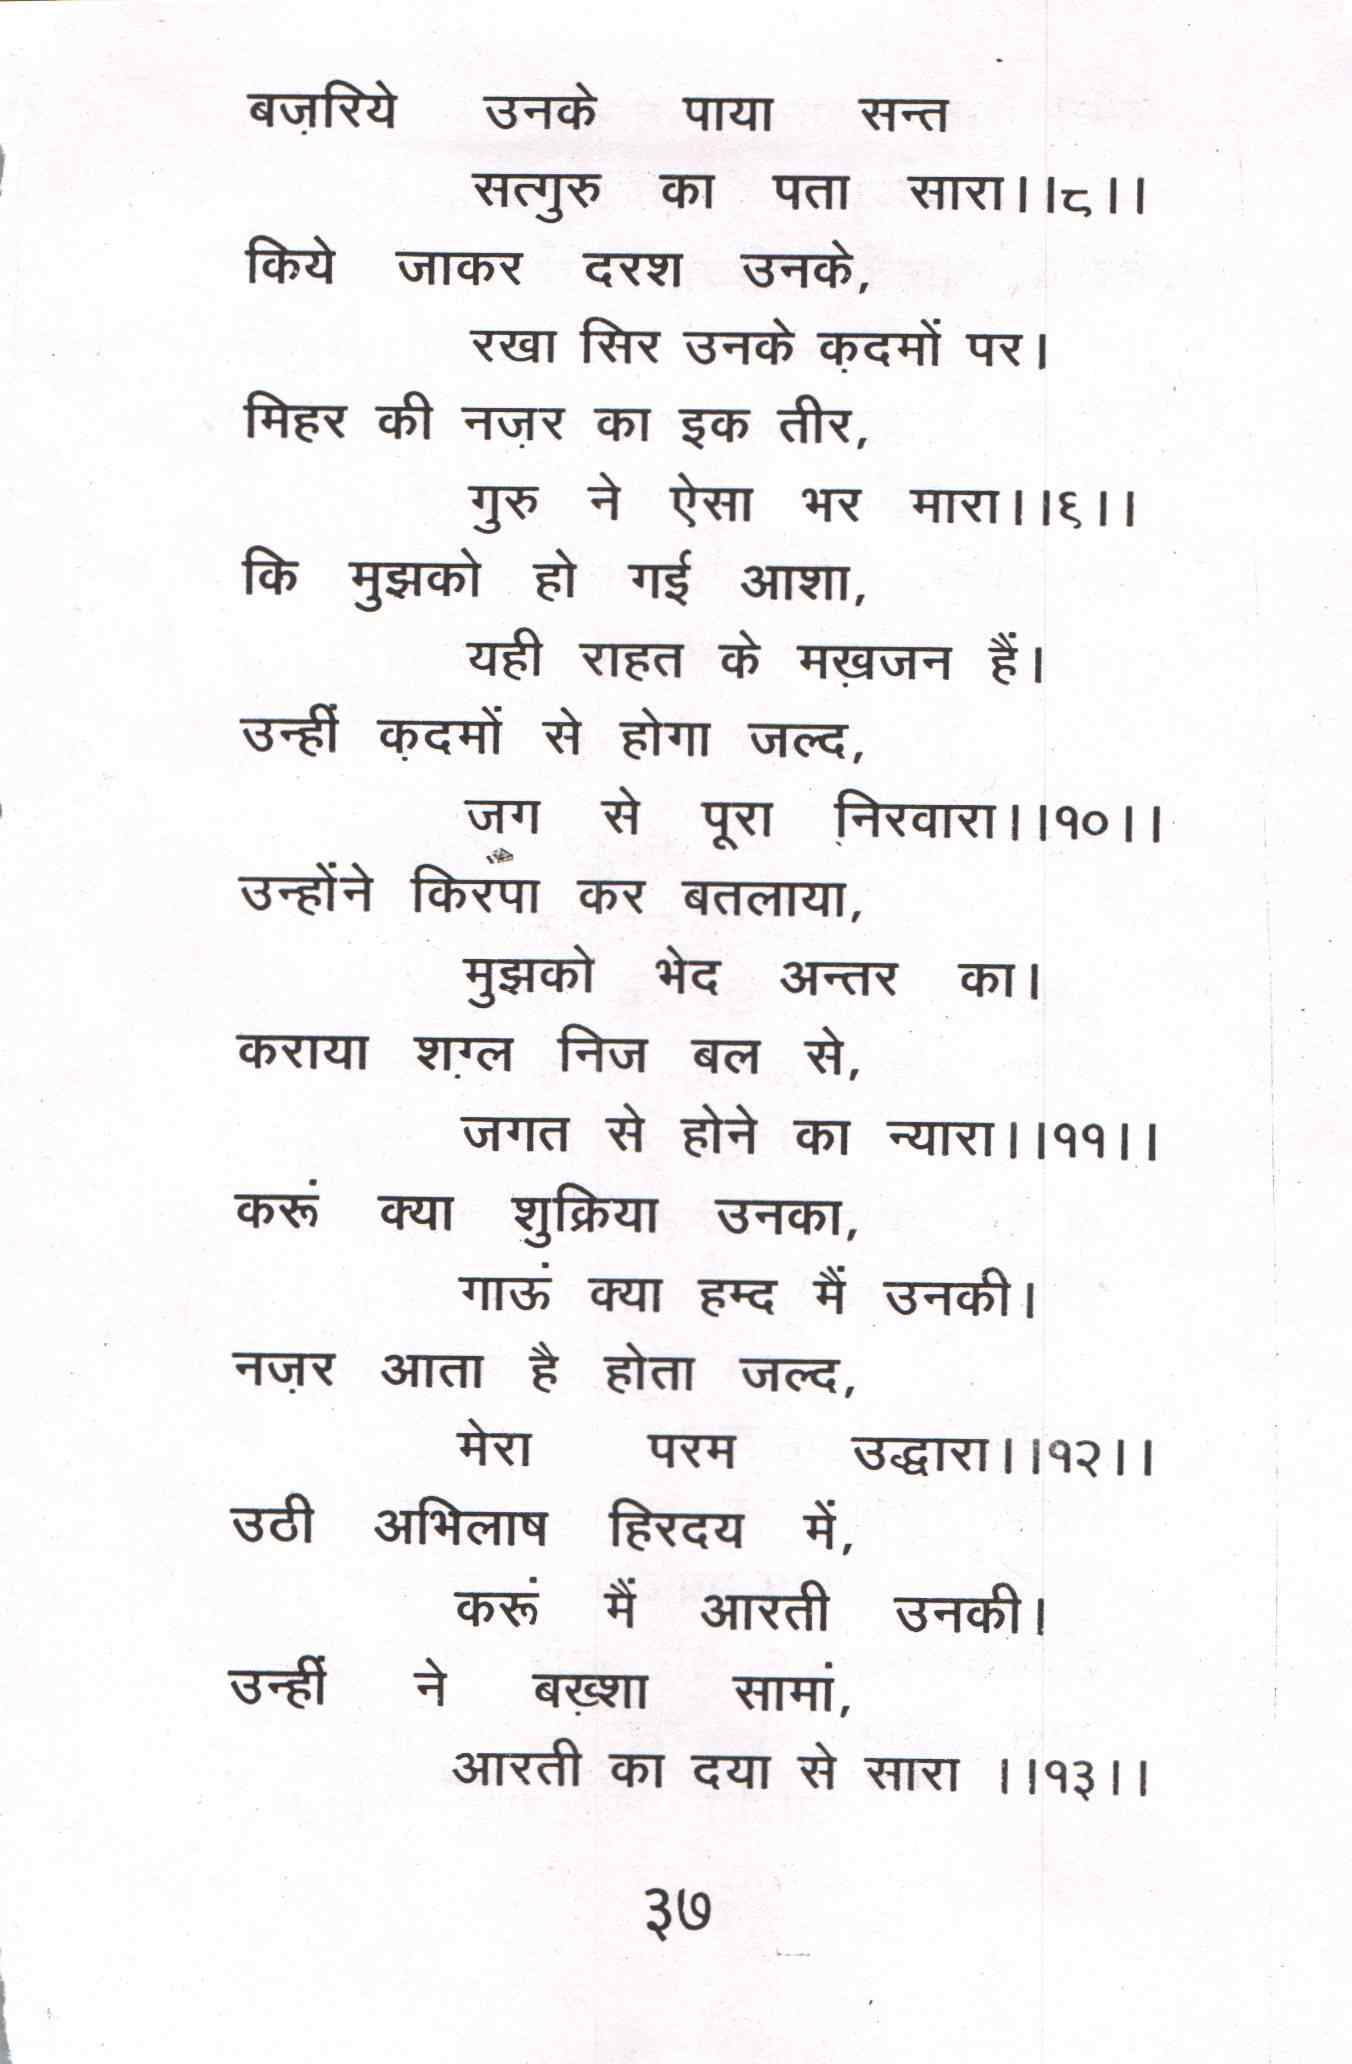 बज़रिये उनके पाया सन्त
सत्गुरु का पता सारा।।८।।
किये जाकर दरश उनके,
रखा सिर उनके क़दमों पर।
मिहर की नज़र का इक तीर,
गुरु ने ऐसा भर मारा।।९।।
कि मुझको हो गई आशा,
यही राहत के मख़जन हैं।
उन्हीं क़दमों से होगा जल्द,
जग से पूरा निरवारा।।१०।।
उन्होंने किरपा कर बतलाया,
मुझको भेद अन्तर का।
कराया शग़्ल निज बल से,
जगत से होने का न्यारा।।११।।
करूं क्या शुक्रिया उनका,
गाऊं क्या हम्द मैं उनकी।
नज़र आता है होता जल्द,
मेरा परम उद्धारा।।१२।।
उठी अभिलाष हिरदय में,
करूं मैं आरती उनकी।
उन्हीं ने बख़्शा सामां,
आरती का दया से सारा ।।१३।।
३७